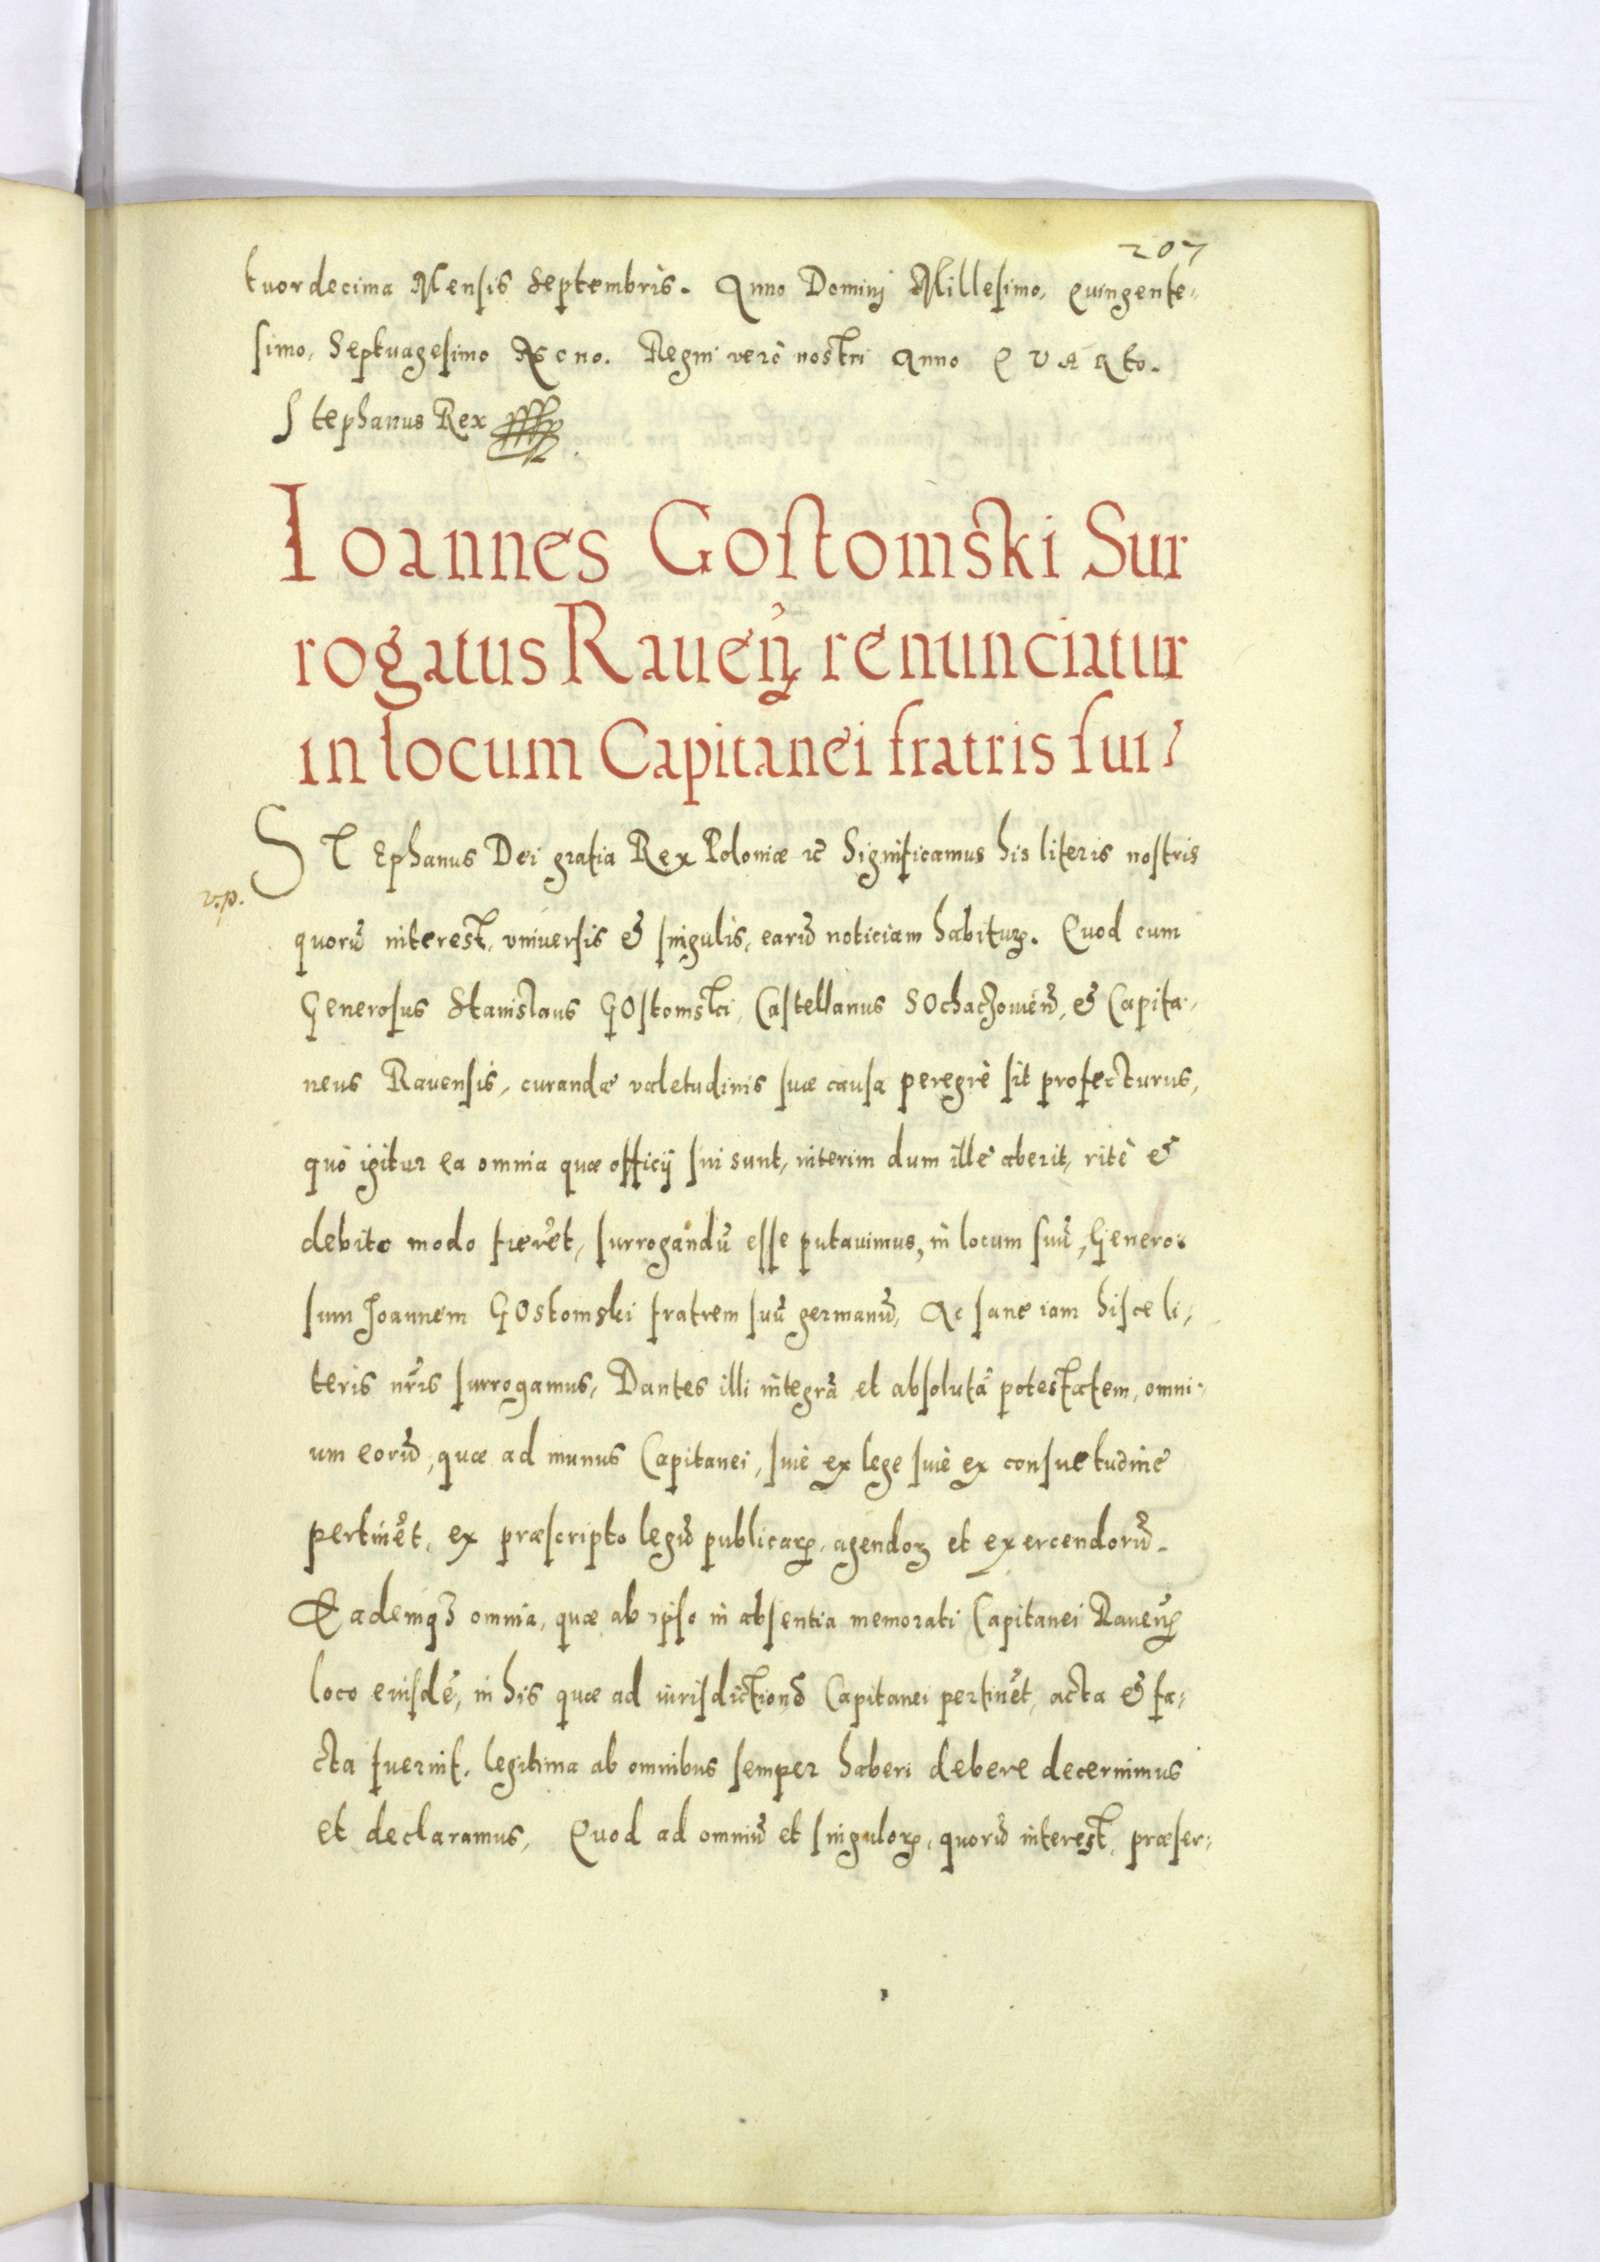 207
tuordecima Mensis Septembris. Anno Domini Millesimo, Quingente-
simo, Septuagesimo Nono. Regni verò nostri Anno QVARto.
Stephanus Rex
Ioannes Gostomski Sur
rogatus Raueñ renunciatur
in locum Capitanei fratris sui
STEphanus Dei gratia Rex Poloniæ etc̄ Significamus his literis nostris
v.p.
quorū interest, vniuersis & singulis, earū noticiam habituꝝ. Quod cum
Generosus Stanislaus GOstomski, Castellanus SOchaczouień, & Capita-
neus Rauensis, curandæ valetudinis suæ causa peregrè sit profecturus,
quò igitur ea omnia quæ officij sui sunt, interim dum ille aberit, ritè &
debito modo fierēt, surrogandū esse putauimus, in locum suū, Genero-
sum Joannem GOstomski fratrem suū germanū, Ac sane iam hisce li-
teris nr̄is surrogamus, Dantes illi integrā et absolutā potestatem, omni-
um eorū, quæ ad munus Capitanei, siuè ex lege siuè ex consuetudine
pertinēt, ex præscripto legū publicaꝝ, agendoꝝ et exercendorū.
Eademqꝫ omnia, quæ ab ipso in absentia memorati Capitanei Raueñ
loco eiusdē, in his quæ ad iurisdictionē Capitanei pertinēt, acta & fa-
cta fuerint, legitima ab omnibus semper haberi debere decernimus
et declaramus, Quod ad omniū et singuloꝝ, quorū interest, præser-